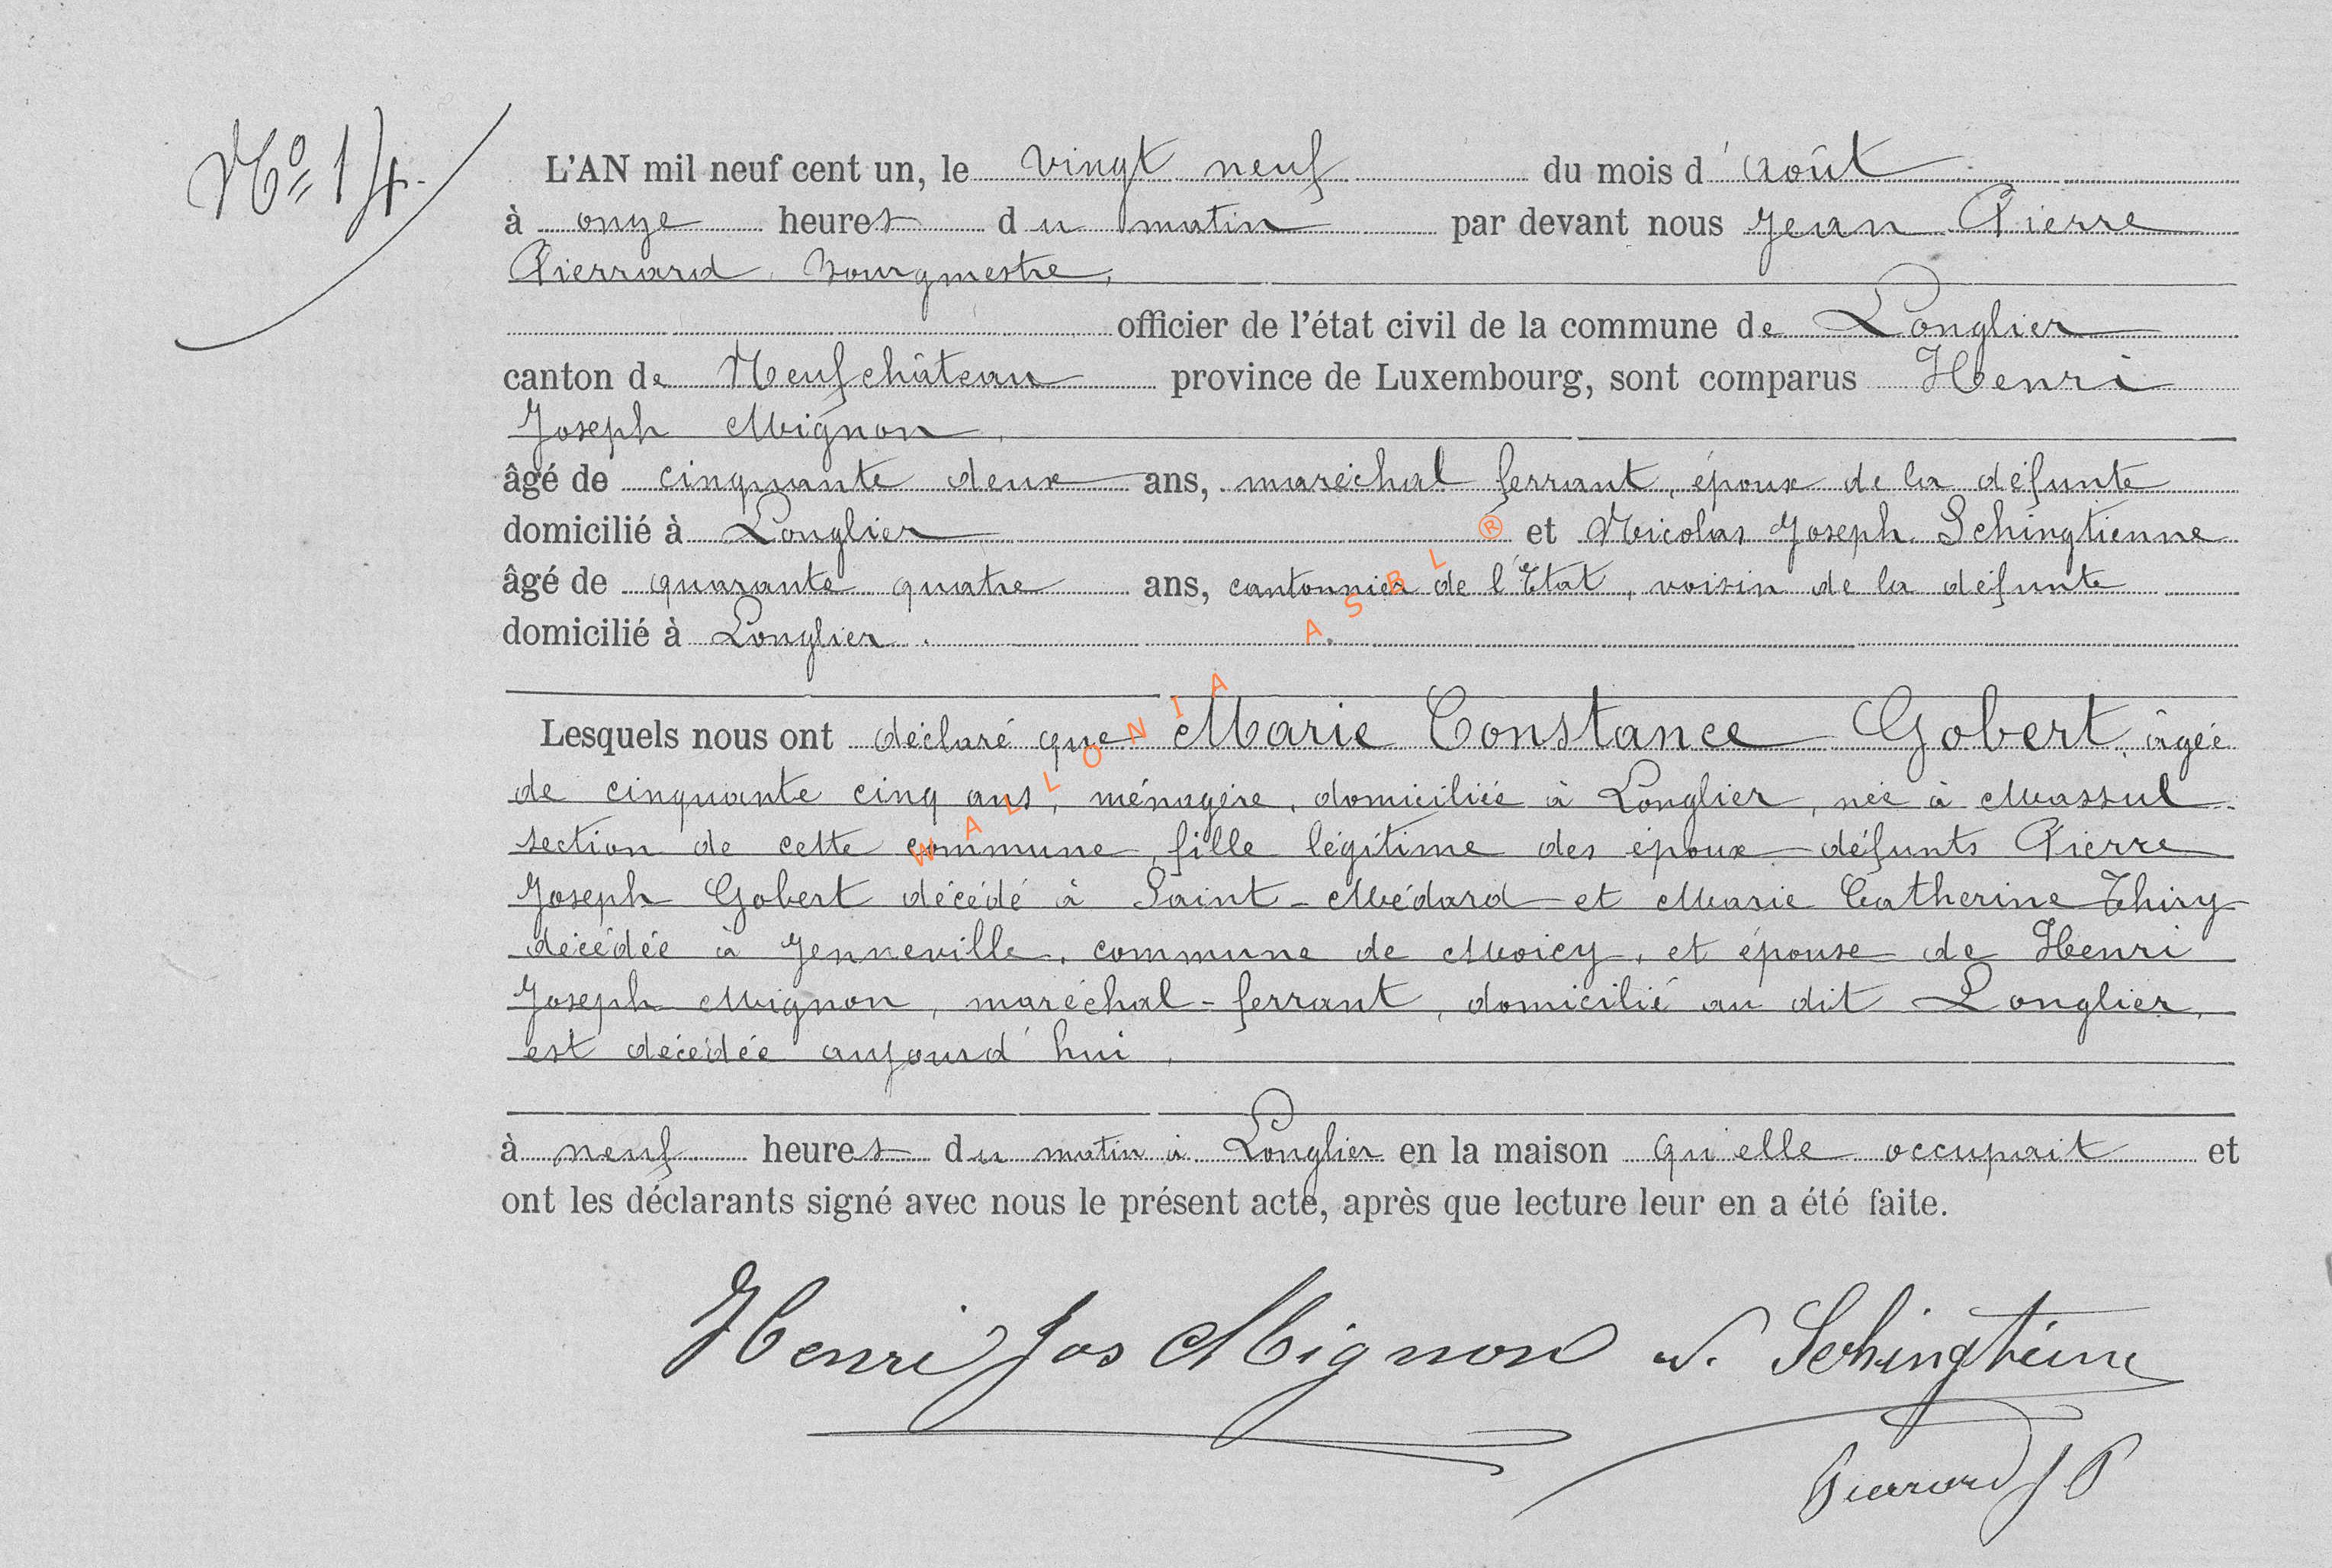 Nº 14.
L'AN mil neuf cent un, le vingt neuf du mois d'août
à onze heures du matin par devant nous Jean Pierre
Pierrard, bourgmestre,
officier de l'état civil de la commune de Longlier
canton de Neufchâteau province de Luxembourg, sont comparus Henri
Joseph Mignon,
âgé de cinquante deux ans, maréchal ferrant, époux de la défunte
domicilié à Longlier et Nicolas Joseph Schingtienne
âgé de quarante quatre ans, cantonnier de l'État, voisin de la défunte
domicilié à Longlier.
Lesquels nous ont déclaré que Marie Constance Gobert, âgée
de cinquante cinq ans, ménagère, domiciliée à Longlier, née à Massul
section de cette commune, fille légitime des époux défunts Pierre
Joseph Gobert décédé à Saint-Médard et Marie Catherine Thiry
décédée à Jenneville, commune de Moicy, et épouse de Henri
Joseph Mignon, maréchal-ferrant, domicilié au dit Longlier,
est décédée aujourd'hui,
à neuf heures du matin à Longlier en la maison qu'elle occupait et
ont les déclarants signé avec nous le présent acte, après que lecture leur en a été faite.
Henri Jos Mignon N. Schingtienne
Pierrard J P
WALLONIA A.S.B.L ®